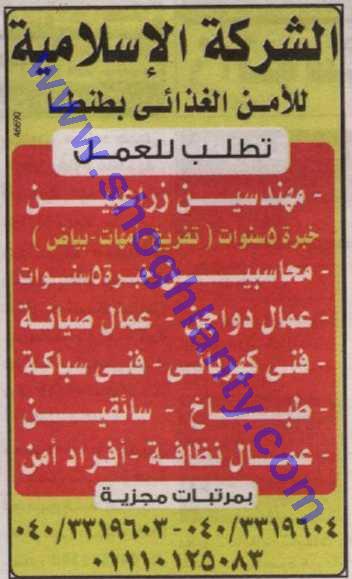 الشركة الإسلامية
للأمن الغذائى بطنطا
46690
تطلب للعمل
- مهندسين زراعيين
خبرة ٥ سنوات ( تفريخ -أمهات-بياض )
- محاسبين خبرة ٥ سنوات
- عمال دواجن - عمال صيانة
- فنى كهربائى - فنى سباكة
- طباخ - سائقين
- عمال نظافة -أفراد أمن
بمرتبات مجزية
٠٤٠/٣٣١٩٦٠٣-٠٤٠/٣٣١٩٦٠٤
٠١١١٠١٢٥٠٨٣
www.shoghlanty.com